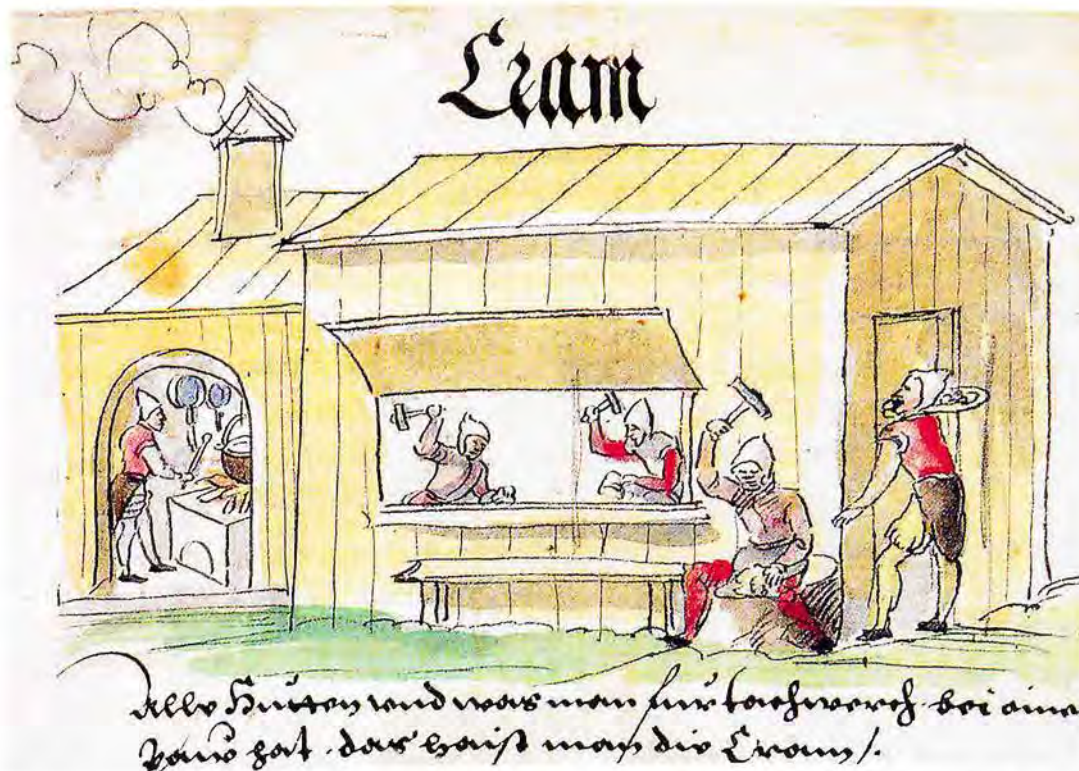 Cram
Alle Hütten vnd was man für tachwerch bei aine
Paw hat. das haist man die Cram /.